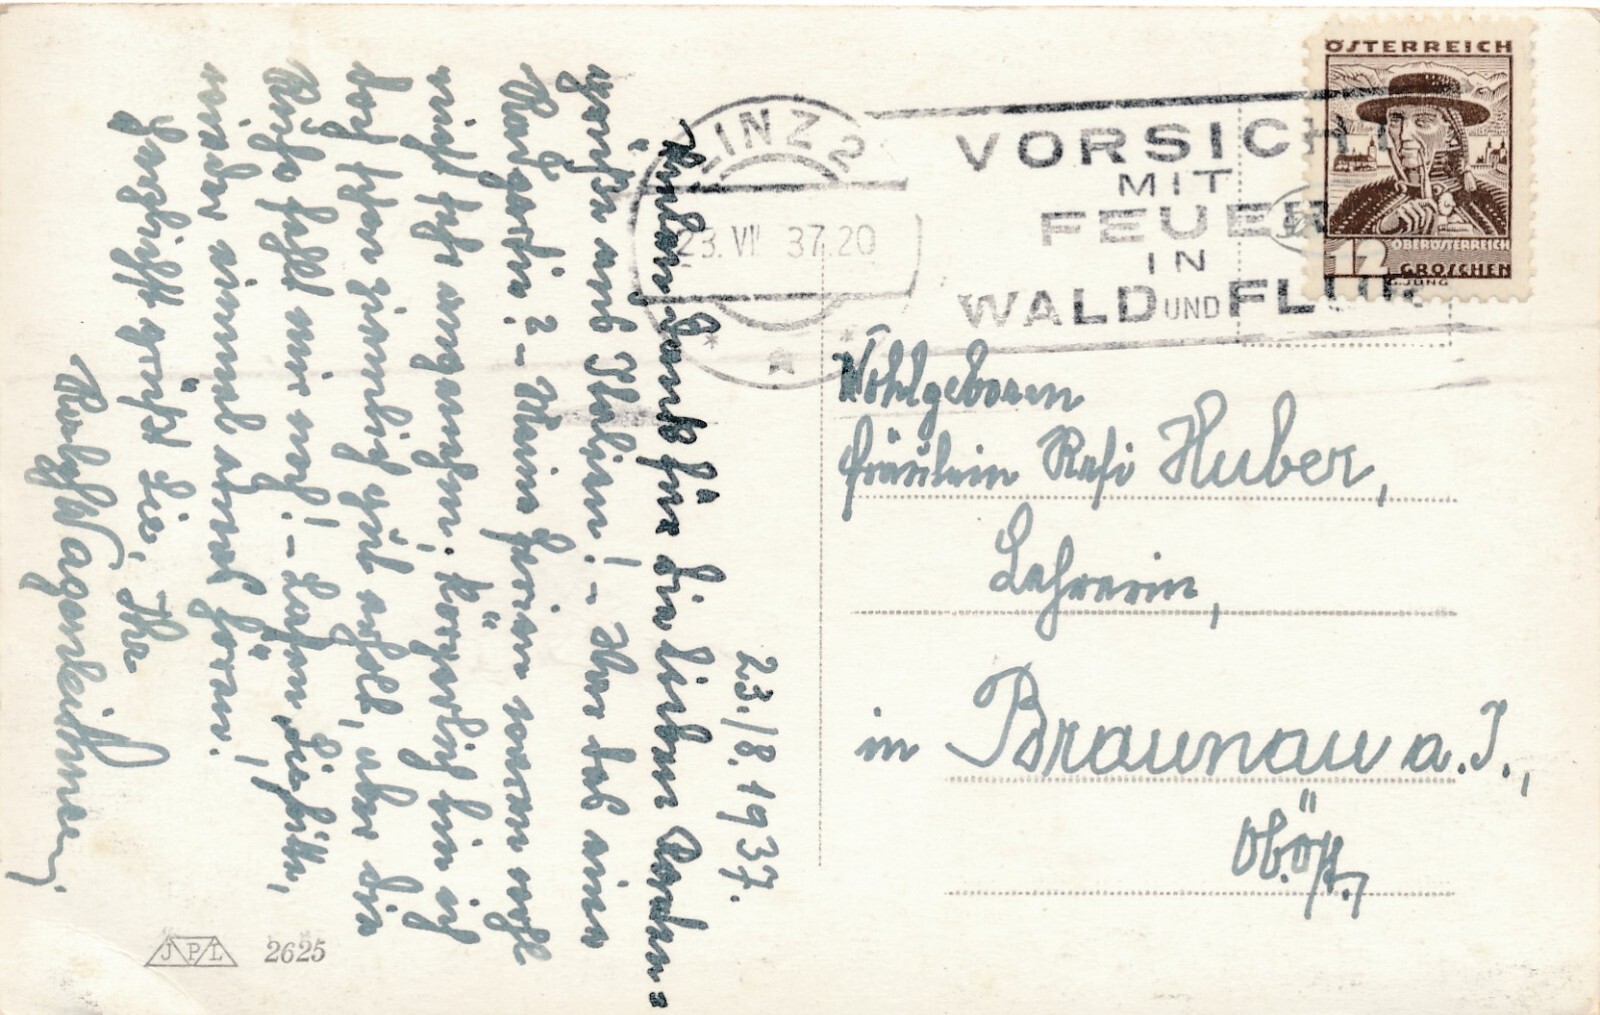 23./8.1937.
Dank für die lieben Karten=
grüße aus Italien! – War das eine
Meine Ferien waren wohl
nicht sehr angenehm. Körperlich bin ich
doch schon ziemlich gut erholt, aber die
Ruhe fehlt mir noch! – Lassen Sie bitte,
wieder einmal etwas hören.
Herzlichst grüßt Sie, Ihr
Wagenleithner.
JPL 2625
LINZ 2
23. VIII 37.20
VORSICHT
MIT
FEUER
IN
WALD UND FLUR
ÖSTERREICH
OBERÖSTERREICH
12 GROSCHEN
G. JUNG
Wohlgeboren
Fräulein Resi Huber,
Lehrerin,
in Braunau a. I.,
Ob.Öst.